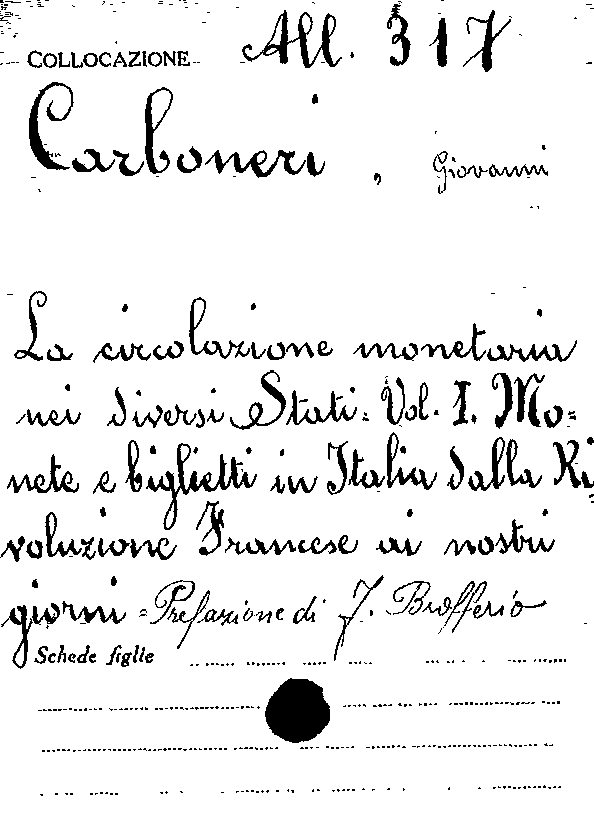 COLLOCAZIONE All. 317
Carboneri, Giovanni
La circolazione monetaria
nei diversi Stati = Vol. I. Mo=
nete e biglietti in Italia dalla Ri=
voluzione Francese ai nostri
giorni = Prefazione di J. Brofferio
Schede figlie